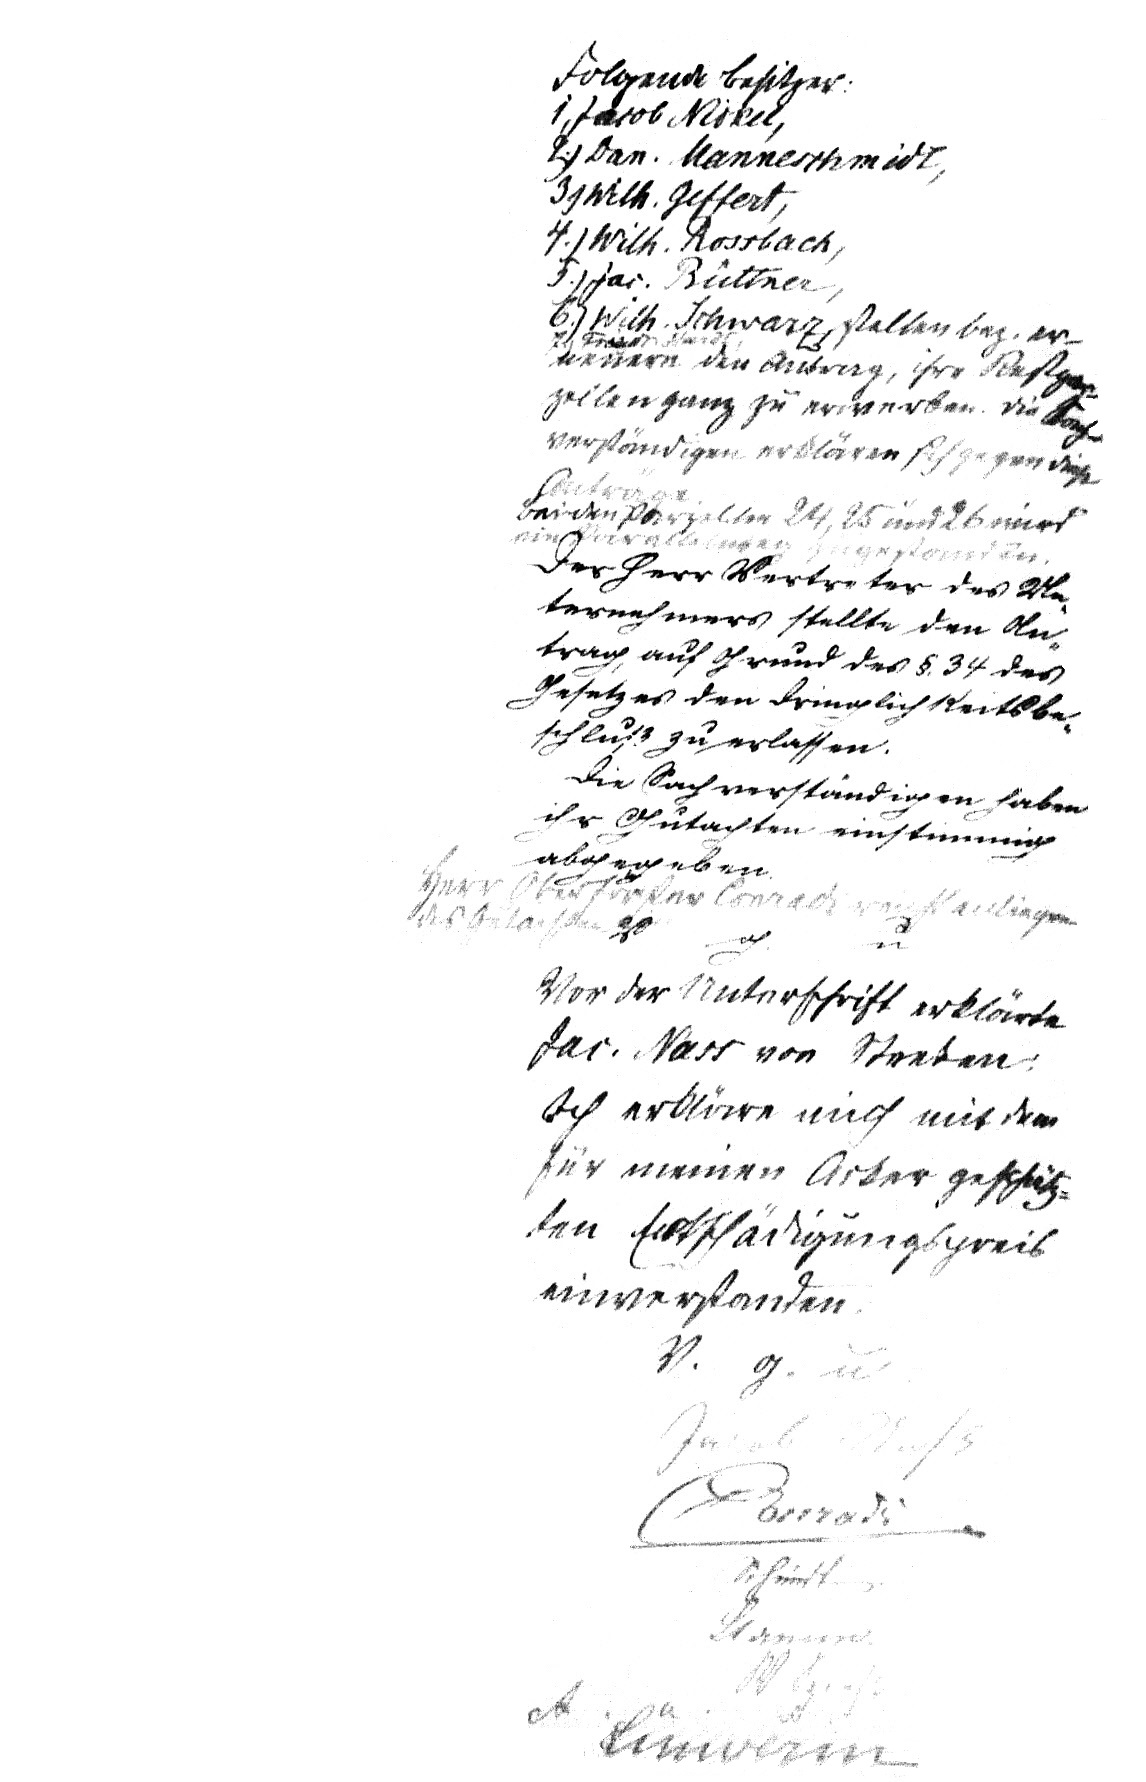 Folgende Besitzer:
1, Jacob Nickel,
2.) Dan. Manneschmidt,
3) Wilh. Geffert,
4.) Wilh. Rossbach,
5.) Jac. Büttner,
6.) Wilh. Schwarz, stellen bez. er-
neuern den Antrag, ihre Restpar-
zellen ganz zu erwerben. Die Sach-
verständigen erklären sich gegen diese
Anträge.
Bei den Parzellen 24, 25 und 26 wird
ein Parallelweg zugestanden.
Der Herr Vertreter des Un-
ternehmers stellte den An-
trag, auf Grund des §. 34 des
Gesetzes den Dringlichkeitsbe-
schluß zu erlassen.
Die Sachverständigen haben
ihr Gutachten einstimmig
abgegeben.
Herr Oberförster Conradi reicht anliegen
des Gutachten
g. u
Vor der Unterschrift erklärte
Jac. Nass von Steeden:
Ich erkläre mich mit dem
für meinen Acker geschätz-
ten Entschädigungspreis
einverstanden.
V. g. u
Jacob Naß
Conradi